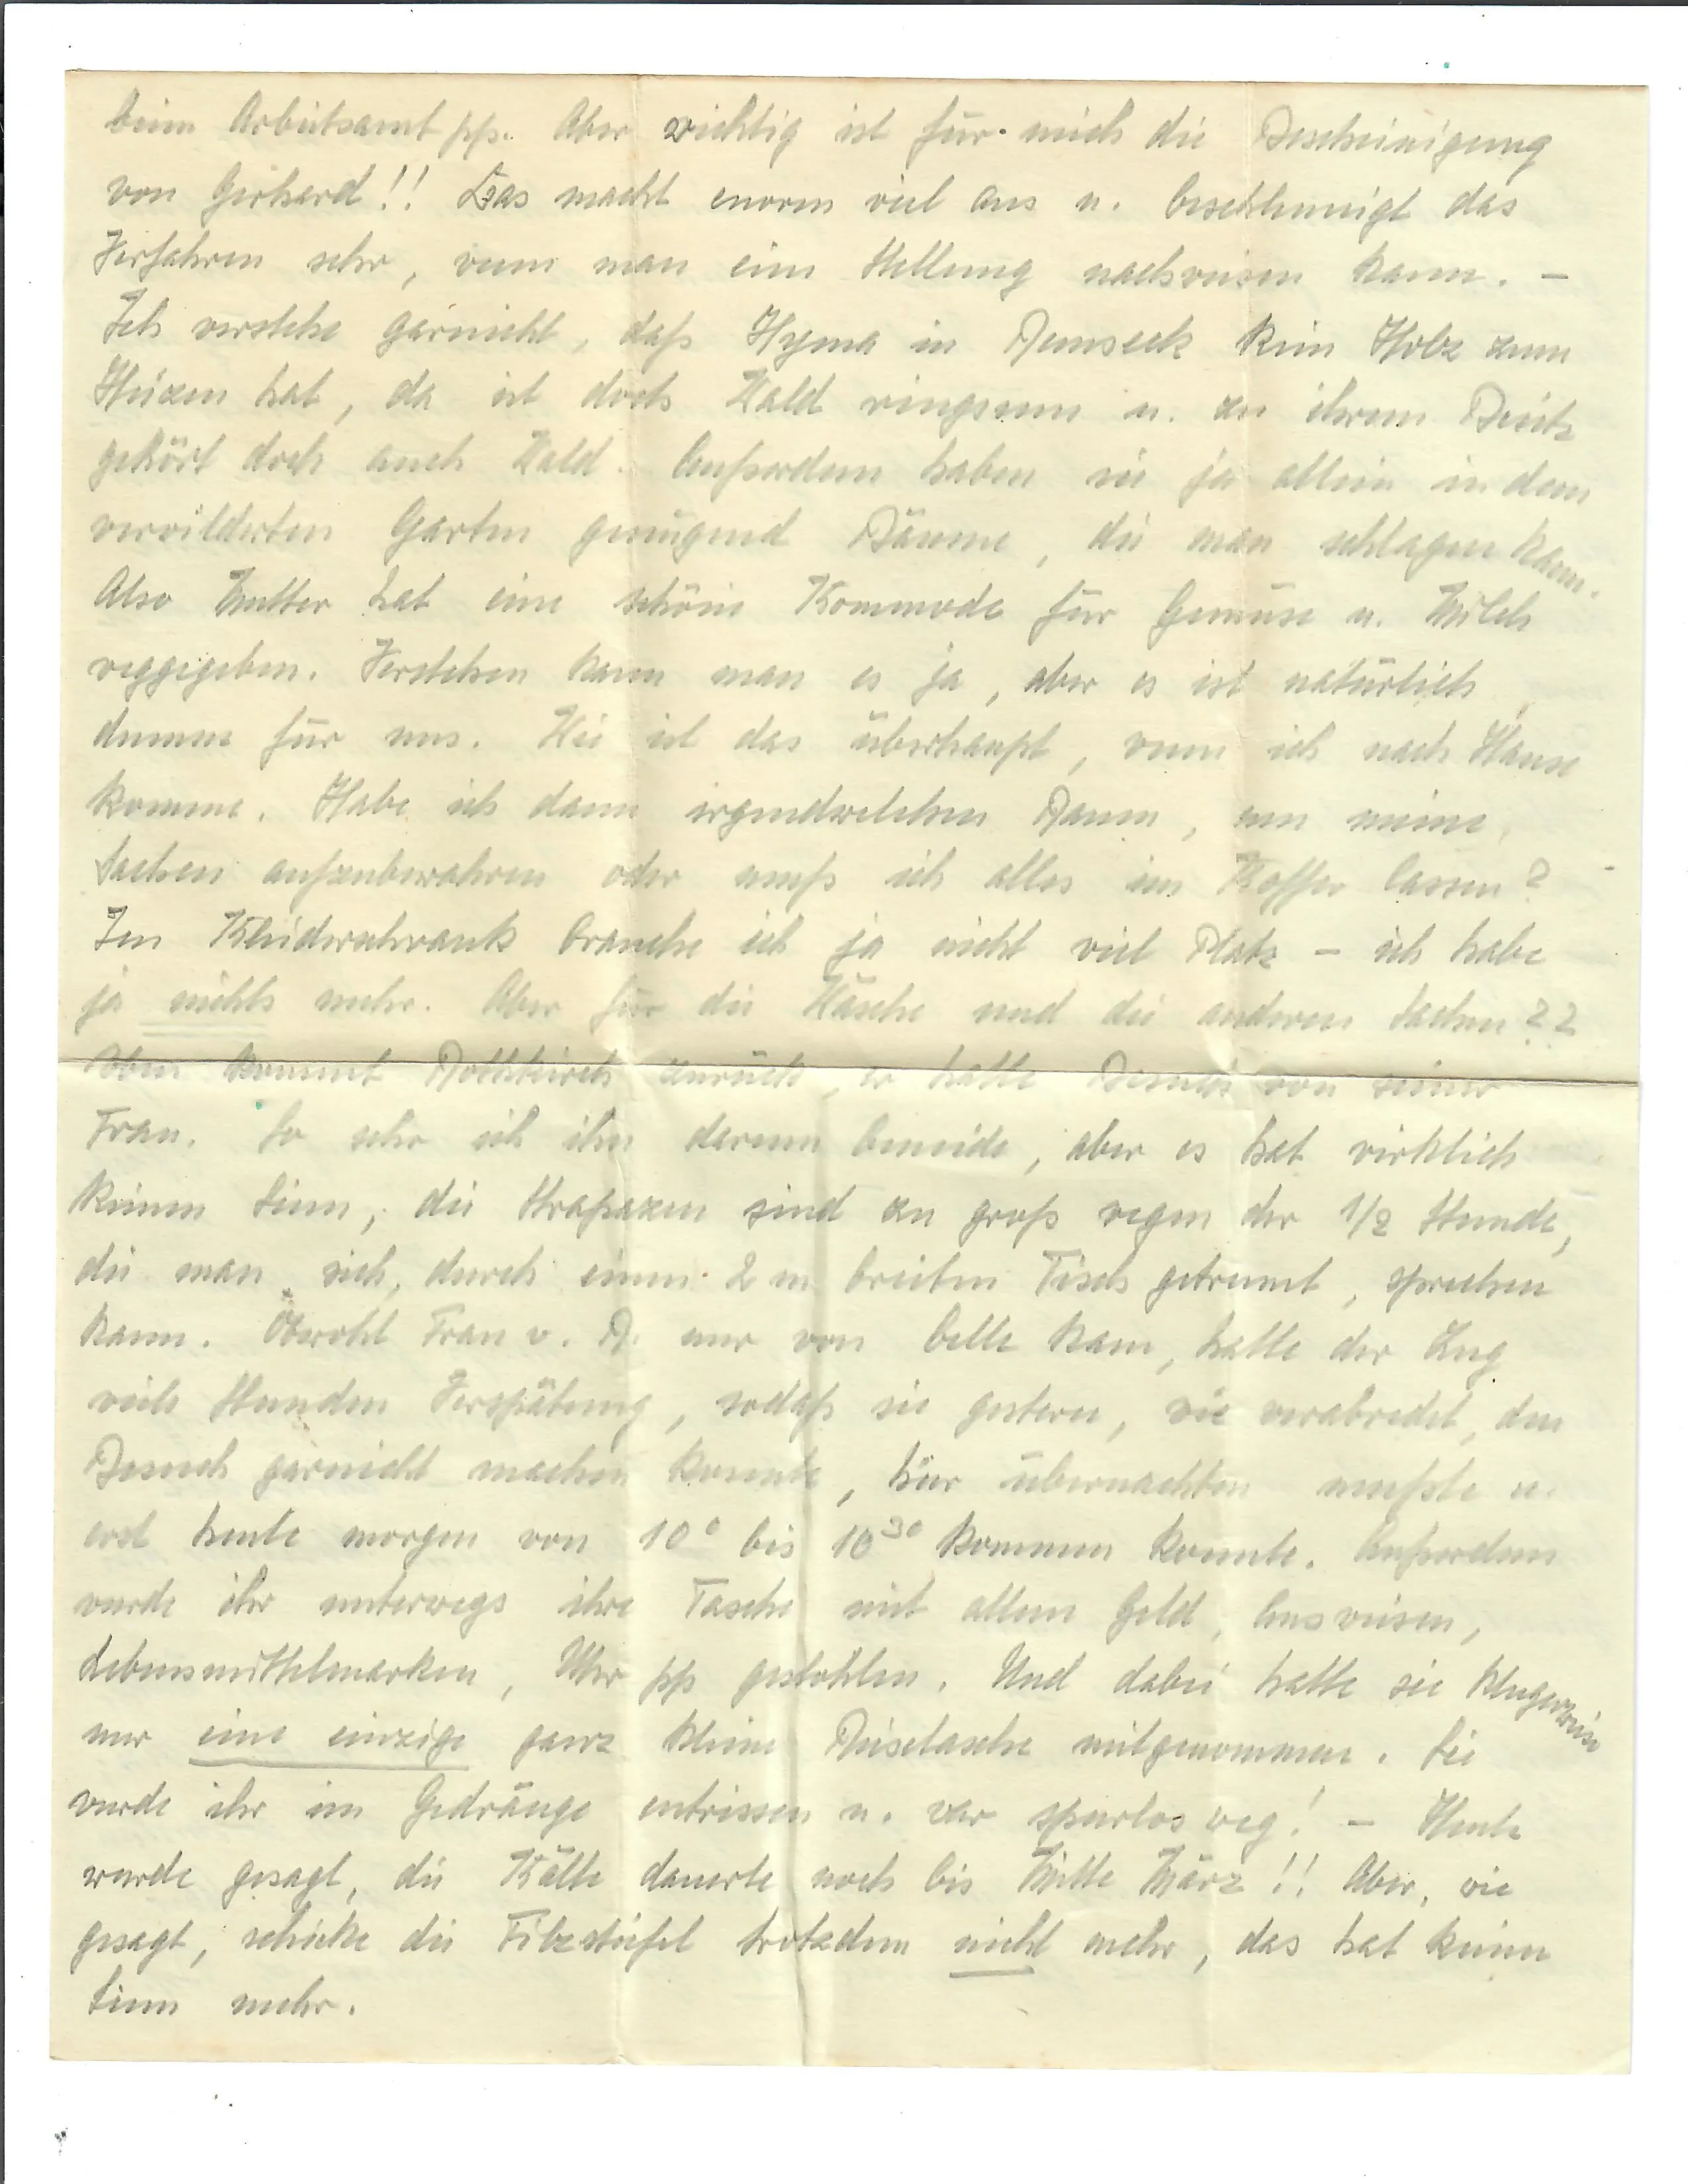 beim Arbeitsamt pp. Aber wichtig ist für mich die Bescheinigung
von Gerhard!! Das macht enorm viel aus u. beschleunigt das
Verfahren sehr, wenn man eine Stellung nachweisen kann. –
Ich verstehe garnicht, daß in kein Holz zum
Heizen hat, da ist doch Wald ringsum u. zu ihrem Besitz
gehört doch auch Wald. Außerdem haben sie ja allein in dem
verwilderten Garten genügend Bäume, die man schlagen kann.
Also Mutter hat eine schöne Kommode für Gemüse u. Milch
weggegeben. Verstehen kann man es ja, aber es ist natürlich
dumm für uns. Wie ist das überhaupt, wenn ich nach Hause
komme. Habe ich dann irgendwelchen Raum, um meine
Sachen aufzubewahren oder muß ich alles im Koffer lassen?
Im Kleiderschrank brauche ich ja nicht viel Platz – ich habe
ja nichts mehr. Aber für die Wäsche und die anderen Sachen??
Eben kommt Rottkirch zurück, er hatte Besuch von seiner
Frau. So sehr ich ihn darum beneide, aber es hat wirklich
keinen Sinn, die Strapazen sind zu groß wegen der 1/2 Stunde,
die man sich, durch einen 2 m breiten Tisch getrennt, sprechen
kann. Obwohl Frau v. R. nur von Celle kam, hatte der Zug
viele Stunden Verspätung, sodaß sie gestern, wie verabredet, den
Besuch garnicht machen konnte, hier übernachten mußte u.
erst heute morgen von 10⁰ bis 10³⁰ kommen konnte. Außerdem
wurde ihr unterwegs ihre Tasche mit allem Geld, Ausweisen,
Lebensmittelmarken, Uhr pp gestohlen. Und dabei hatte sie klugerweise
nur eine einzige ganz kleine Reisetasche mitgenommen. Sie
wurde ihr im Gedränge entrissen u. war spurlos weg! – Heute
wurde gesagt, die Kälte dauerte noch bis Mitte März!! Aber, wie
gesagt, schicke die Filzstiefel trotzdem nicht mehr, das hat keinen
Sinn mehr.